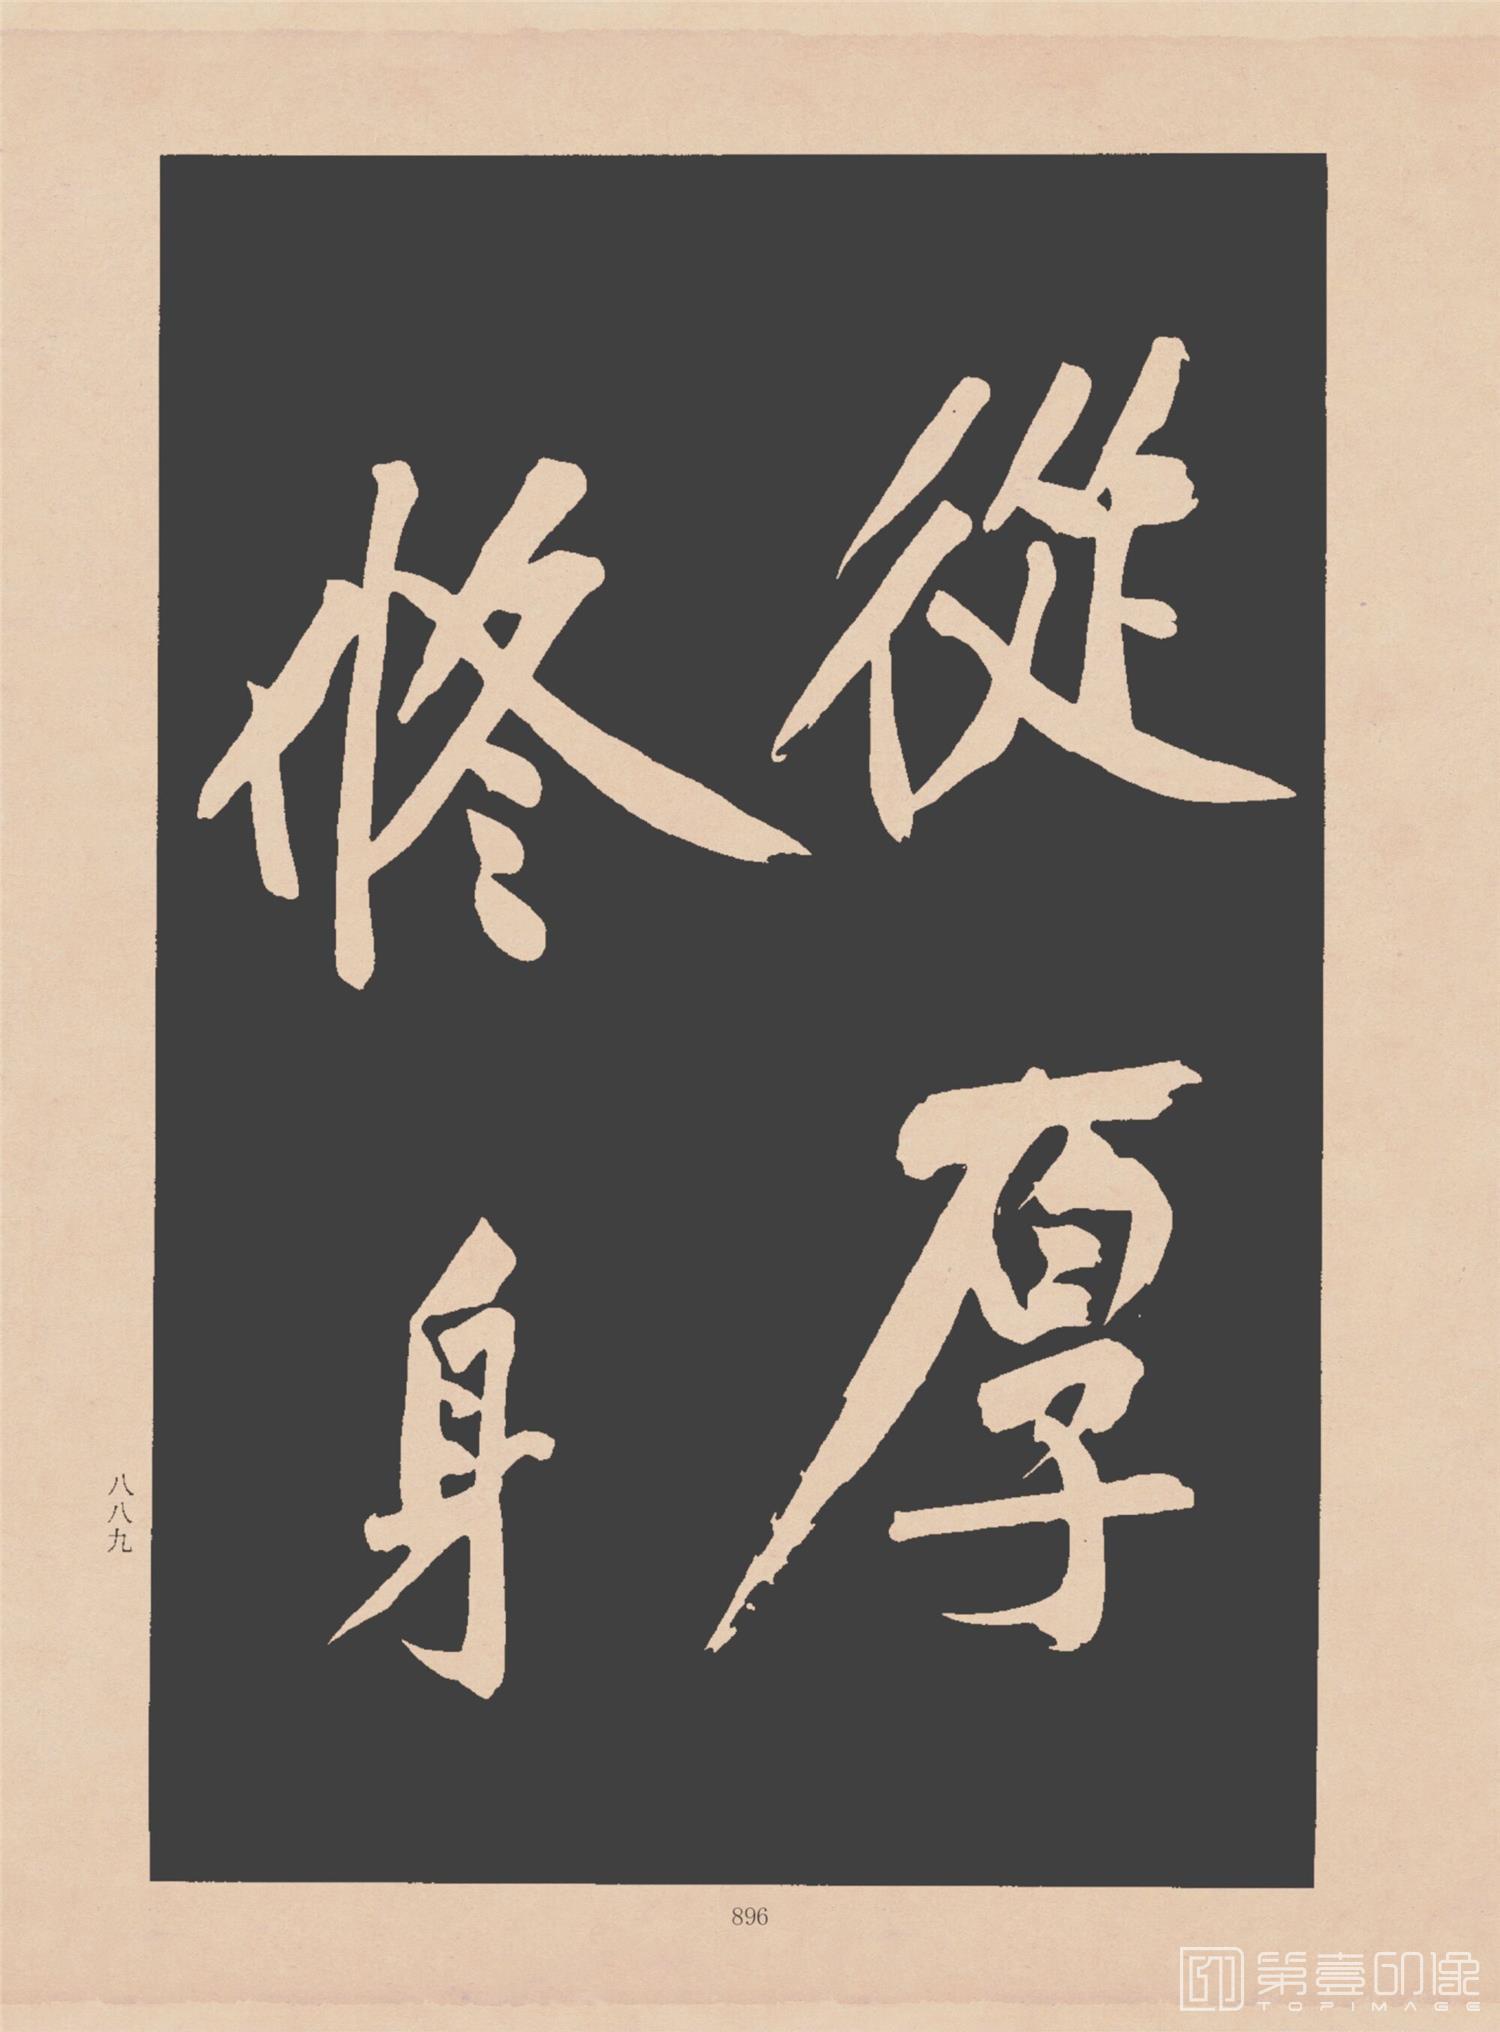 從厚
修身
八八九
896
第壹印像
TOPIMAGE